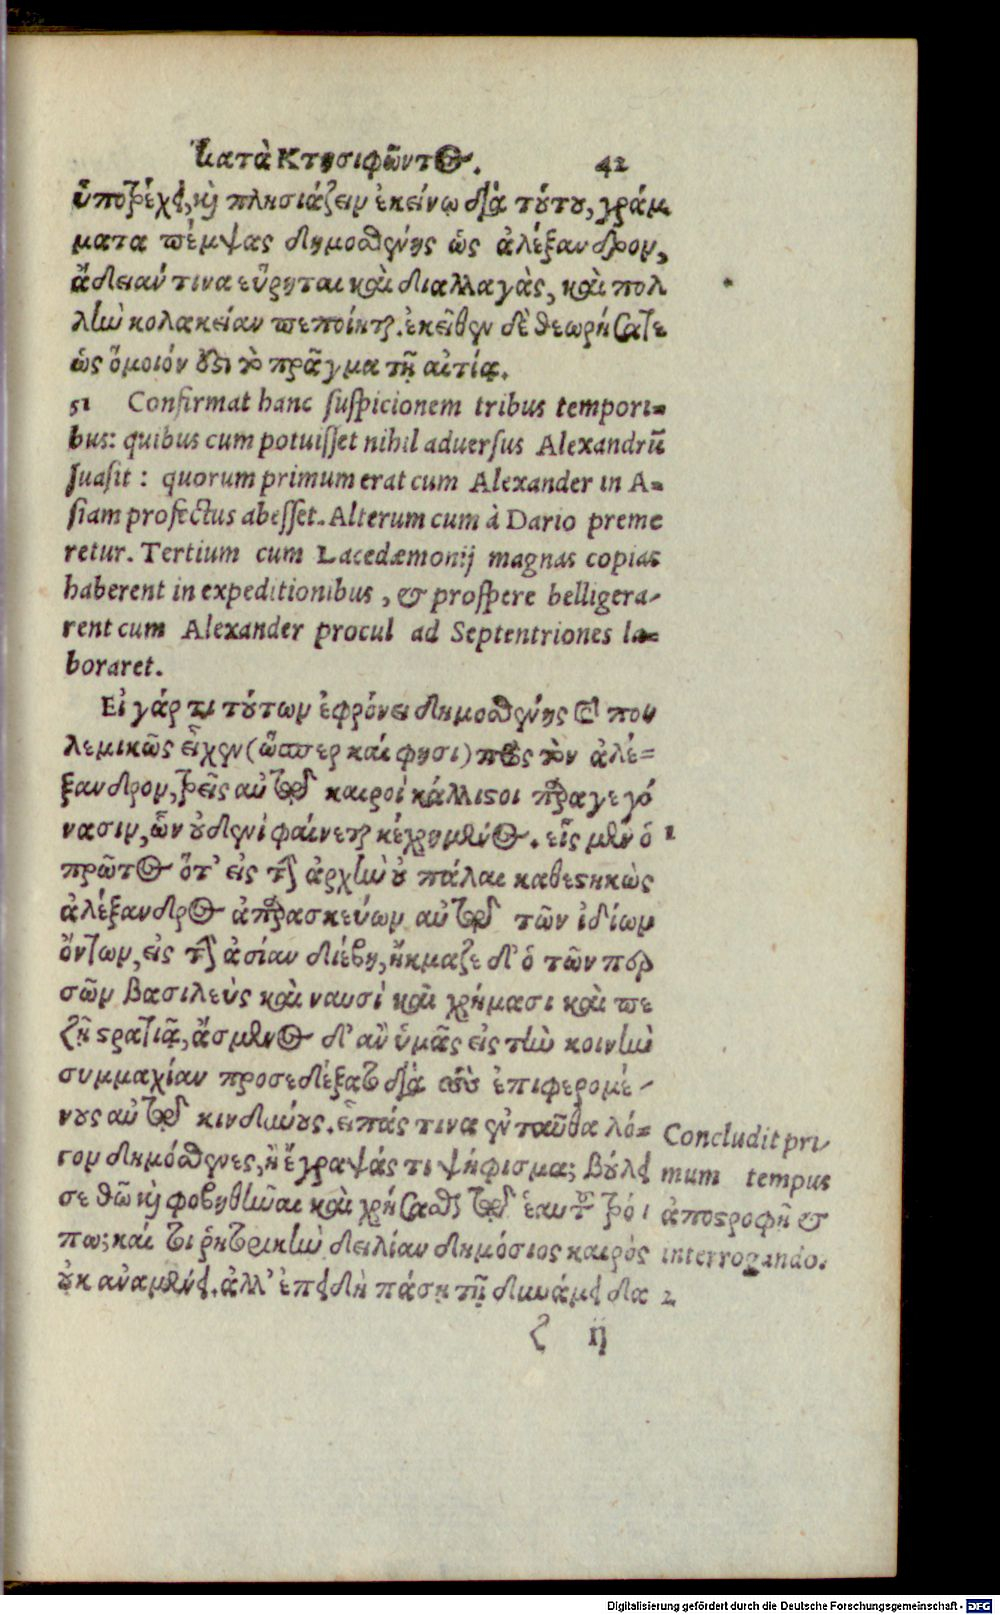 Κατὰ Κτησιφῶντος. 42
ὑποτρέχει, καὶ πλησιάζειν ἐκείνῳ διὰ τούτου, γράμ
ματα πέμψας δημοσθένης ὡς ἀλέξανδρον,
ἄδειάν τινα εὕρηται καὶ διαλλαγὰς, καὶ πολ
λὴν κολακείαν πεποίηται. ἐκεῖθεν δὲ θεωρήσατε
ὡς ὅμοιόν ἐστι τὸ πρᾶγμα τῇ αἰτίᾳ.
51 Confirmat hanc suspicionem tribus tempori=
bus: quibus cum potuisset nihil aduersus Alexandrū
suasit: quorum primum erat cum Alexander in A=
siam profectus abesset. Alterum cum à Dario preme
retur. Tertium cum Lacedæmonij magnas copias
haberent in expeditionibus, & prospere belligera-
rent cum Alexander procul ad Septentriones la=
boraret.
Εἰ γάρ τι τούτων ἐφρόνει δημοσθένης καὶ πο
λεμικῶς εἶχεν (ὥσπερ καί φησι) πρὸς τὸν ἀλέ=
ξανδρον, τρεῖς αὐτῷ καιροὶ κάλλιστοι παραγεγό
νασιν, ὧν οὐδενὶ φαίνεται κεχρημένος. εἷς μὲν ὁ 1
πρῶτος ὅτ' εἰς τὴν ἀρχὴν οὐ πάλαι καθεστηκὼς
ἀλέξανδρος ἀπαρασκεύων αὐτῷ τῶν ἰδίων
ὄντων, εἰς τὴν ἀσίαν διέβη, ἤκμαζε δ' ὁ τῶν περ
σῶν βασιλεὺς καὶ ναυσὶ καὶ χρήμασι καὶ πε
ζῇ στρατιᾷ, ἄσμενος δ' ἂν ὑμᾶς εἰς τὴν κοινὴν
συμμαχίαν προσεδέξατο διὰ τοὺς ἐπιφερομέ-
νους αὐτῷ κινδύνους. εἶπάς τινα ἐνταῦθα λό=
γον δημόσθενες, ἢ ἔγραψάς τι ψήφισμα; βούλει
σε θῶ καὶ φοβηθῆναι καὶ χρήσασθαι τῷ ἑαυτοῦ τρό
πῳ; καί τοι ῥητορικὴν δειλίαν δημόσιος καιρὸς
οὐκ ἀναμένει. ἀλλ' ἐπειδὴ πάσῃ τῇ δυνάμει δα 2
Concludit pri-
mum tempus
ἀποστροφῇ &
interrogando.
ζ ij
Digitalisierung gefördert durch die Deutsche Forschungsgemeinschaft - DFG